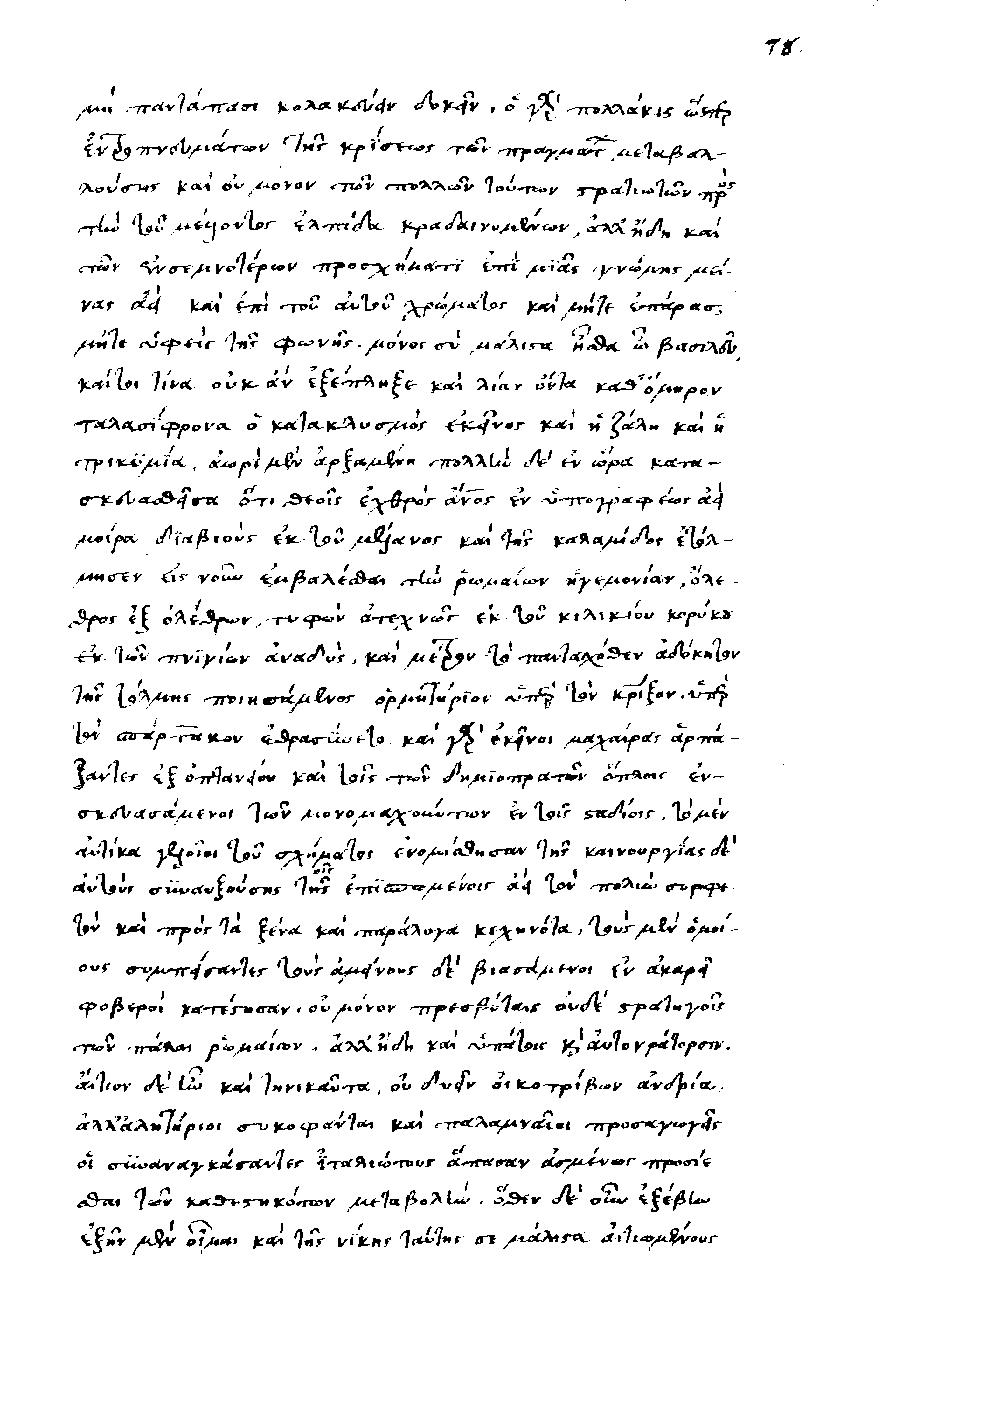 78.
μὴ παντάπασι κολακεύειν δοκεῖν. ὃ γὰρ πολλάκις ὥσπερ
πνευμάτων τῆς κρίσεως τῶν πραγμάτων μεταβαλ-
λούσης καὶ οὐ μόνον τῶν πολλῶν τούτων στρατιωτῶν πρὸς
τὴν τοῦ μέλλοντος ἐλπίδα κραδαινομένων, ἀλλ' ἤδη καὶ
τῶν ἐν σεμνοτέρων προσχήματι ἐπὶ μιᾶς γνώμης μεί-
νας ἀεὶ καὶ ἐπὶ τοῦ αὐτοῦ χρώματος καὶ μήτε ἐπάρας
μήτε ὑφεὶς τῆς φωνῆς. μόνος σὺ μάλιστα ἦσθα ὦ βασιλεῦ,
καίτοι τίνα οὐκ ἂν ἐξέπληξε καὶ λίαν ὄντα καθ' ὅμηρον
ταλασίφρονα ὁ κατακλυσμὸς ἐκεῖνος καὶ ἡ ζάλη καὶ ἡ
τρικυμία, ἀωρὶ μὲν ἀρξαμένη πολλὴν δὲ ἐν ὥρα κατα-
σκευασθεῖσα ὅτι θεοῖς ἐχθρὸς ἄνος ἐν ὑπογραφέως ἀεὶ
μοίρα διαβιοὺς ἐκ τοῦ μέλανος καὶ τῆς καλαμίδος ἐτόλ-
μησεν εἰς νοῦν ἐμβαλέσθαι τὴν ῥωμαίων ἡγεμονίαν, ὄλε-
θρος ἐξ ὀλέθρων, τυφὼν ἀτεχνῶς ἐκ τοῦ κιλικίου κορύκου
ἐκ τῶν πνιγίων ἀναδὺς, καὶ τὸ πανταχόθεν ἀδόκητον
τῆς τόλμης ποιησάμενος ὁρμητήριον ὑπὲρ τὸν κρίξον. ὑπὲρ
τὸν σπάρτακον ἐθρασύνετο καὶ γὰρ ἐκεῖνοι μαχαίρας ἁρπά-
ξαντες ἐξ ὀπτανείου καὶ τοῖς τῶν δημιοπρατῶν ὅπλοις ἐν-
σκευασάμενοι τῶν μονομαχούντων ἐν τοῖς σταδίοις. τὸ μὲν
αὐτίκα γελοῖοι τοῦ σχήματος ἐνομίσθησαν τῆς καινουργίας δὲ
αὐτοὺς συναυξούσης τοῖς ἐπισπωμένοις ἀεὶ τὸν πολὺν συρφε
τὸν καὶ πρὸς τὰ ξένα καὶ παράλογα κεχηνότα, τοὺς μὲν ὁμοί-
ους συμπείσαντες τοὺς ἀμείνους δὲ βιασάμενοι ἐν ἀκαρεῖ
φοβεροὶ κατέστησαν. οὐ μόνον πρεσβύταις οὐδὲ στρατηγοῖς
τῶν πάλαι ῥωμαίων. ἀλλ' ἤδη καὶ ὑπάτοις καὶ αὐτοκράτορσιν.
αἴτιον δὲ ἦν καὶ τηνικαῦτα, οὐ δυεῖν οἰκοτρίβων ἀνδρία.
ἀλλ' ἀλητήριοι συκοφάνται καὶ παλαμναῖοι προσαγωγεῖς
οἳ συναναγκάσαντες ἰταλιώτους ἅπασαν ἀσμένως προσίε
σθαι τῶν καθεστηκότων μεταβολὴν. ὅθεν δὲ οὖν ἐξέβην
ἐξῆν μὲν οἶμαι καὶ τῆς νίκης ταύτης σε μάλιστα αἰτιωμένους